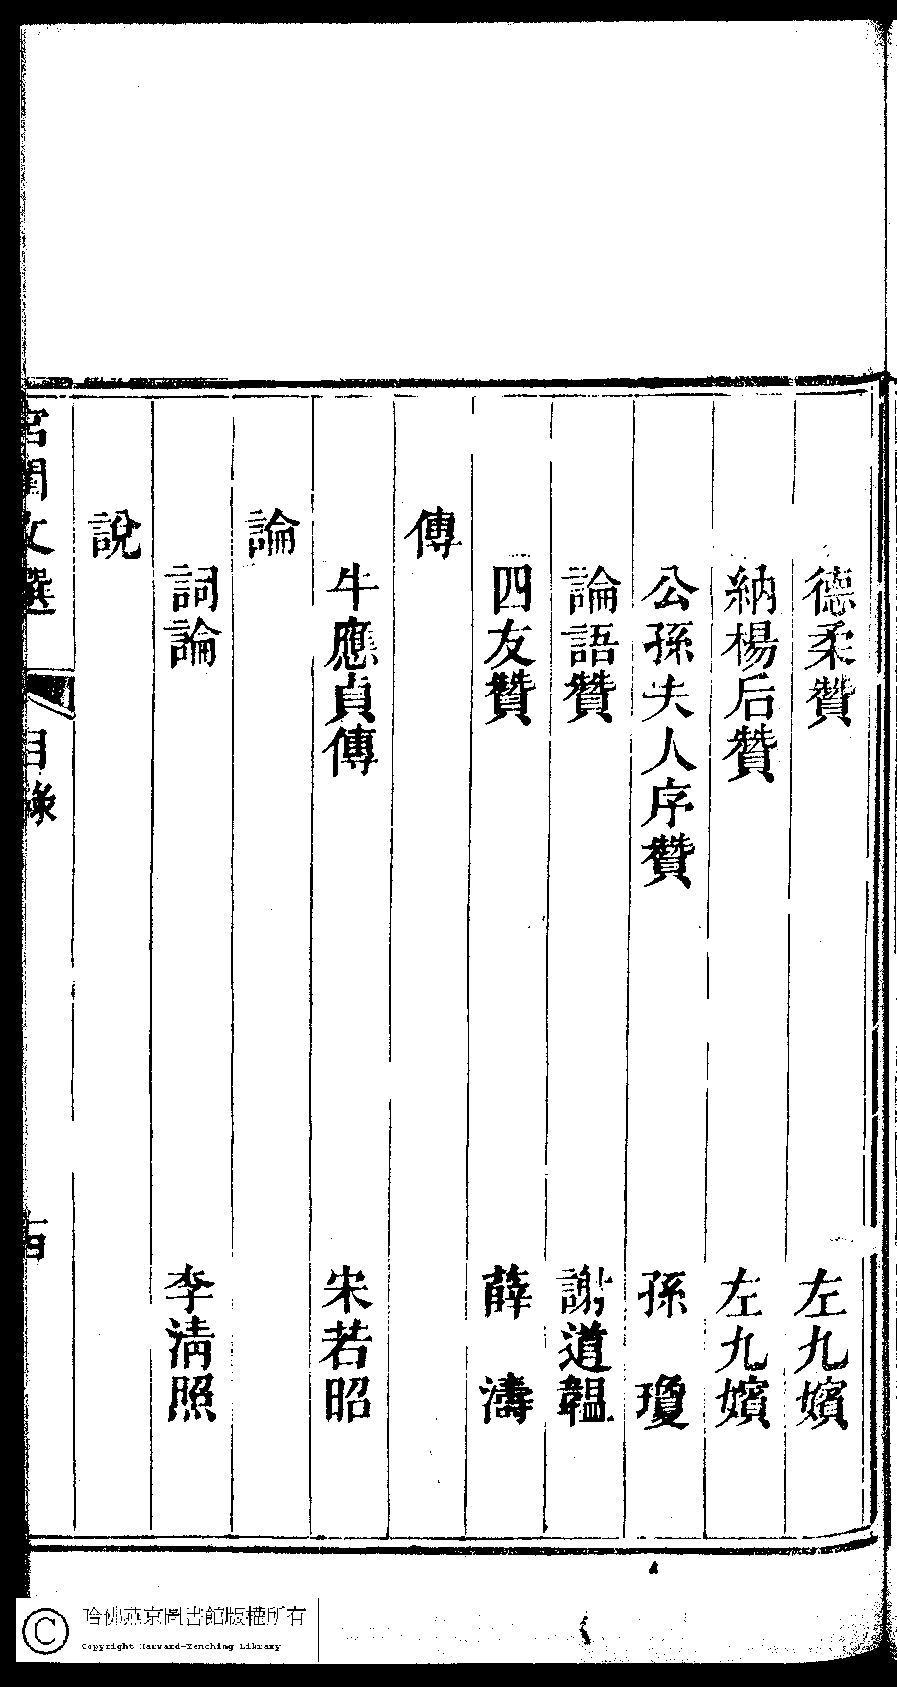 德柔贊 左九嬪
納楊后贊 左九嬪
公孫夫人序贊 孫 瓊
論語贊 謝道韞
四友贊 薛 濤
傳
牛應貞傳 宋若昭
論
詞論 李清照
說
宮閨文選 目錄
哈佛燕京圖書館版權所有
Copyright Harvard-Yenching Library